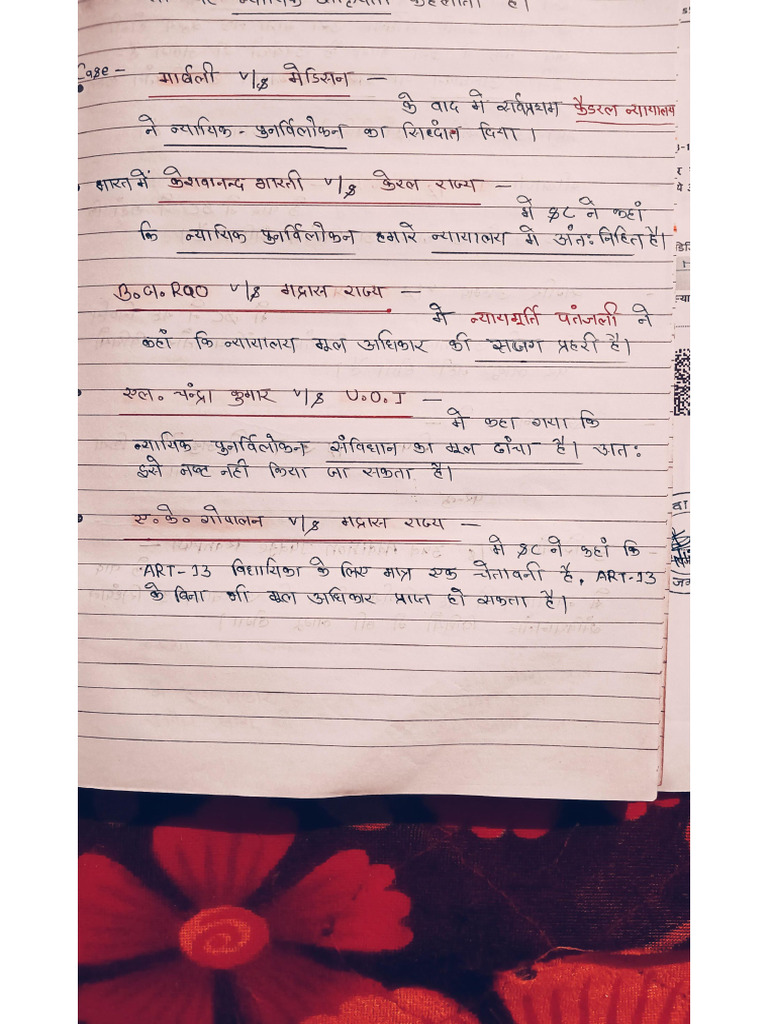 कहलाती है।
Case – मार्बली v/s मेडिसन –
के वाद मे सर्वप्रथम फैडरल न्यायालय
ने न्यायिक - पुनर्विलोकन का सिध्दांत दिया ।
भारत में केशवानन्द भारती v/s केरल राज्य –
मे SC ने कहां
कि न्यायिक पुनर्विलोकन हमारे न्यायालय मे अंतः निहित है।
B.G.Rao v/s मद्रास राज्य –
मे न्यायमूर्ति पंतजली ने
कहां कि न्यायालय मूल अधिकार की सजग प्रहरी है।
एल. चंन्द्रा कुमार v/s U.O.I –
मे कहा गया कि
न्यायिक पुनर्विलोकन संविधान का मूल ढांचा है। अतः
इसे नष्ट नही किया जा सकता है।
ए. के. गोपालन v/s मद्रास राज्य –
मे SC ने कहां कि
ART-13 विधायिका के लिए मात्र एक चेतावनी है, ART-13
के बिना भी मूल अधिकार प्राप्त हो सकता है।